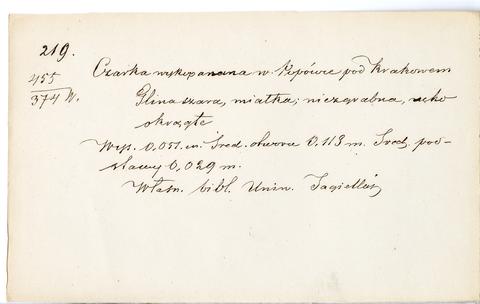 219.
455
374 W.
Czarka wykopanana w Popówie pod Krakowem
Glina szara, miałka; niezgrabna, ucho
okrągłe
Wys. 0,051. m. Śred. otworu 0,113 m. Śred. pod-
stawy 0,029 m.
Własn. bibl. Uniw. Jagielloń.